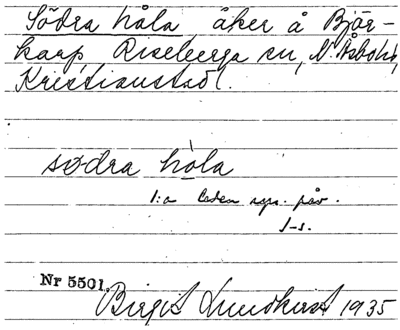 Södra håla åker å Björ-
karp, Riseberga sn, N. Åsbo hd,
Kristianstad l.
sødra hòla
1:a leden uppr. påv.
J-s.
Nr 5501.
Birgit Lundkvist 1935